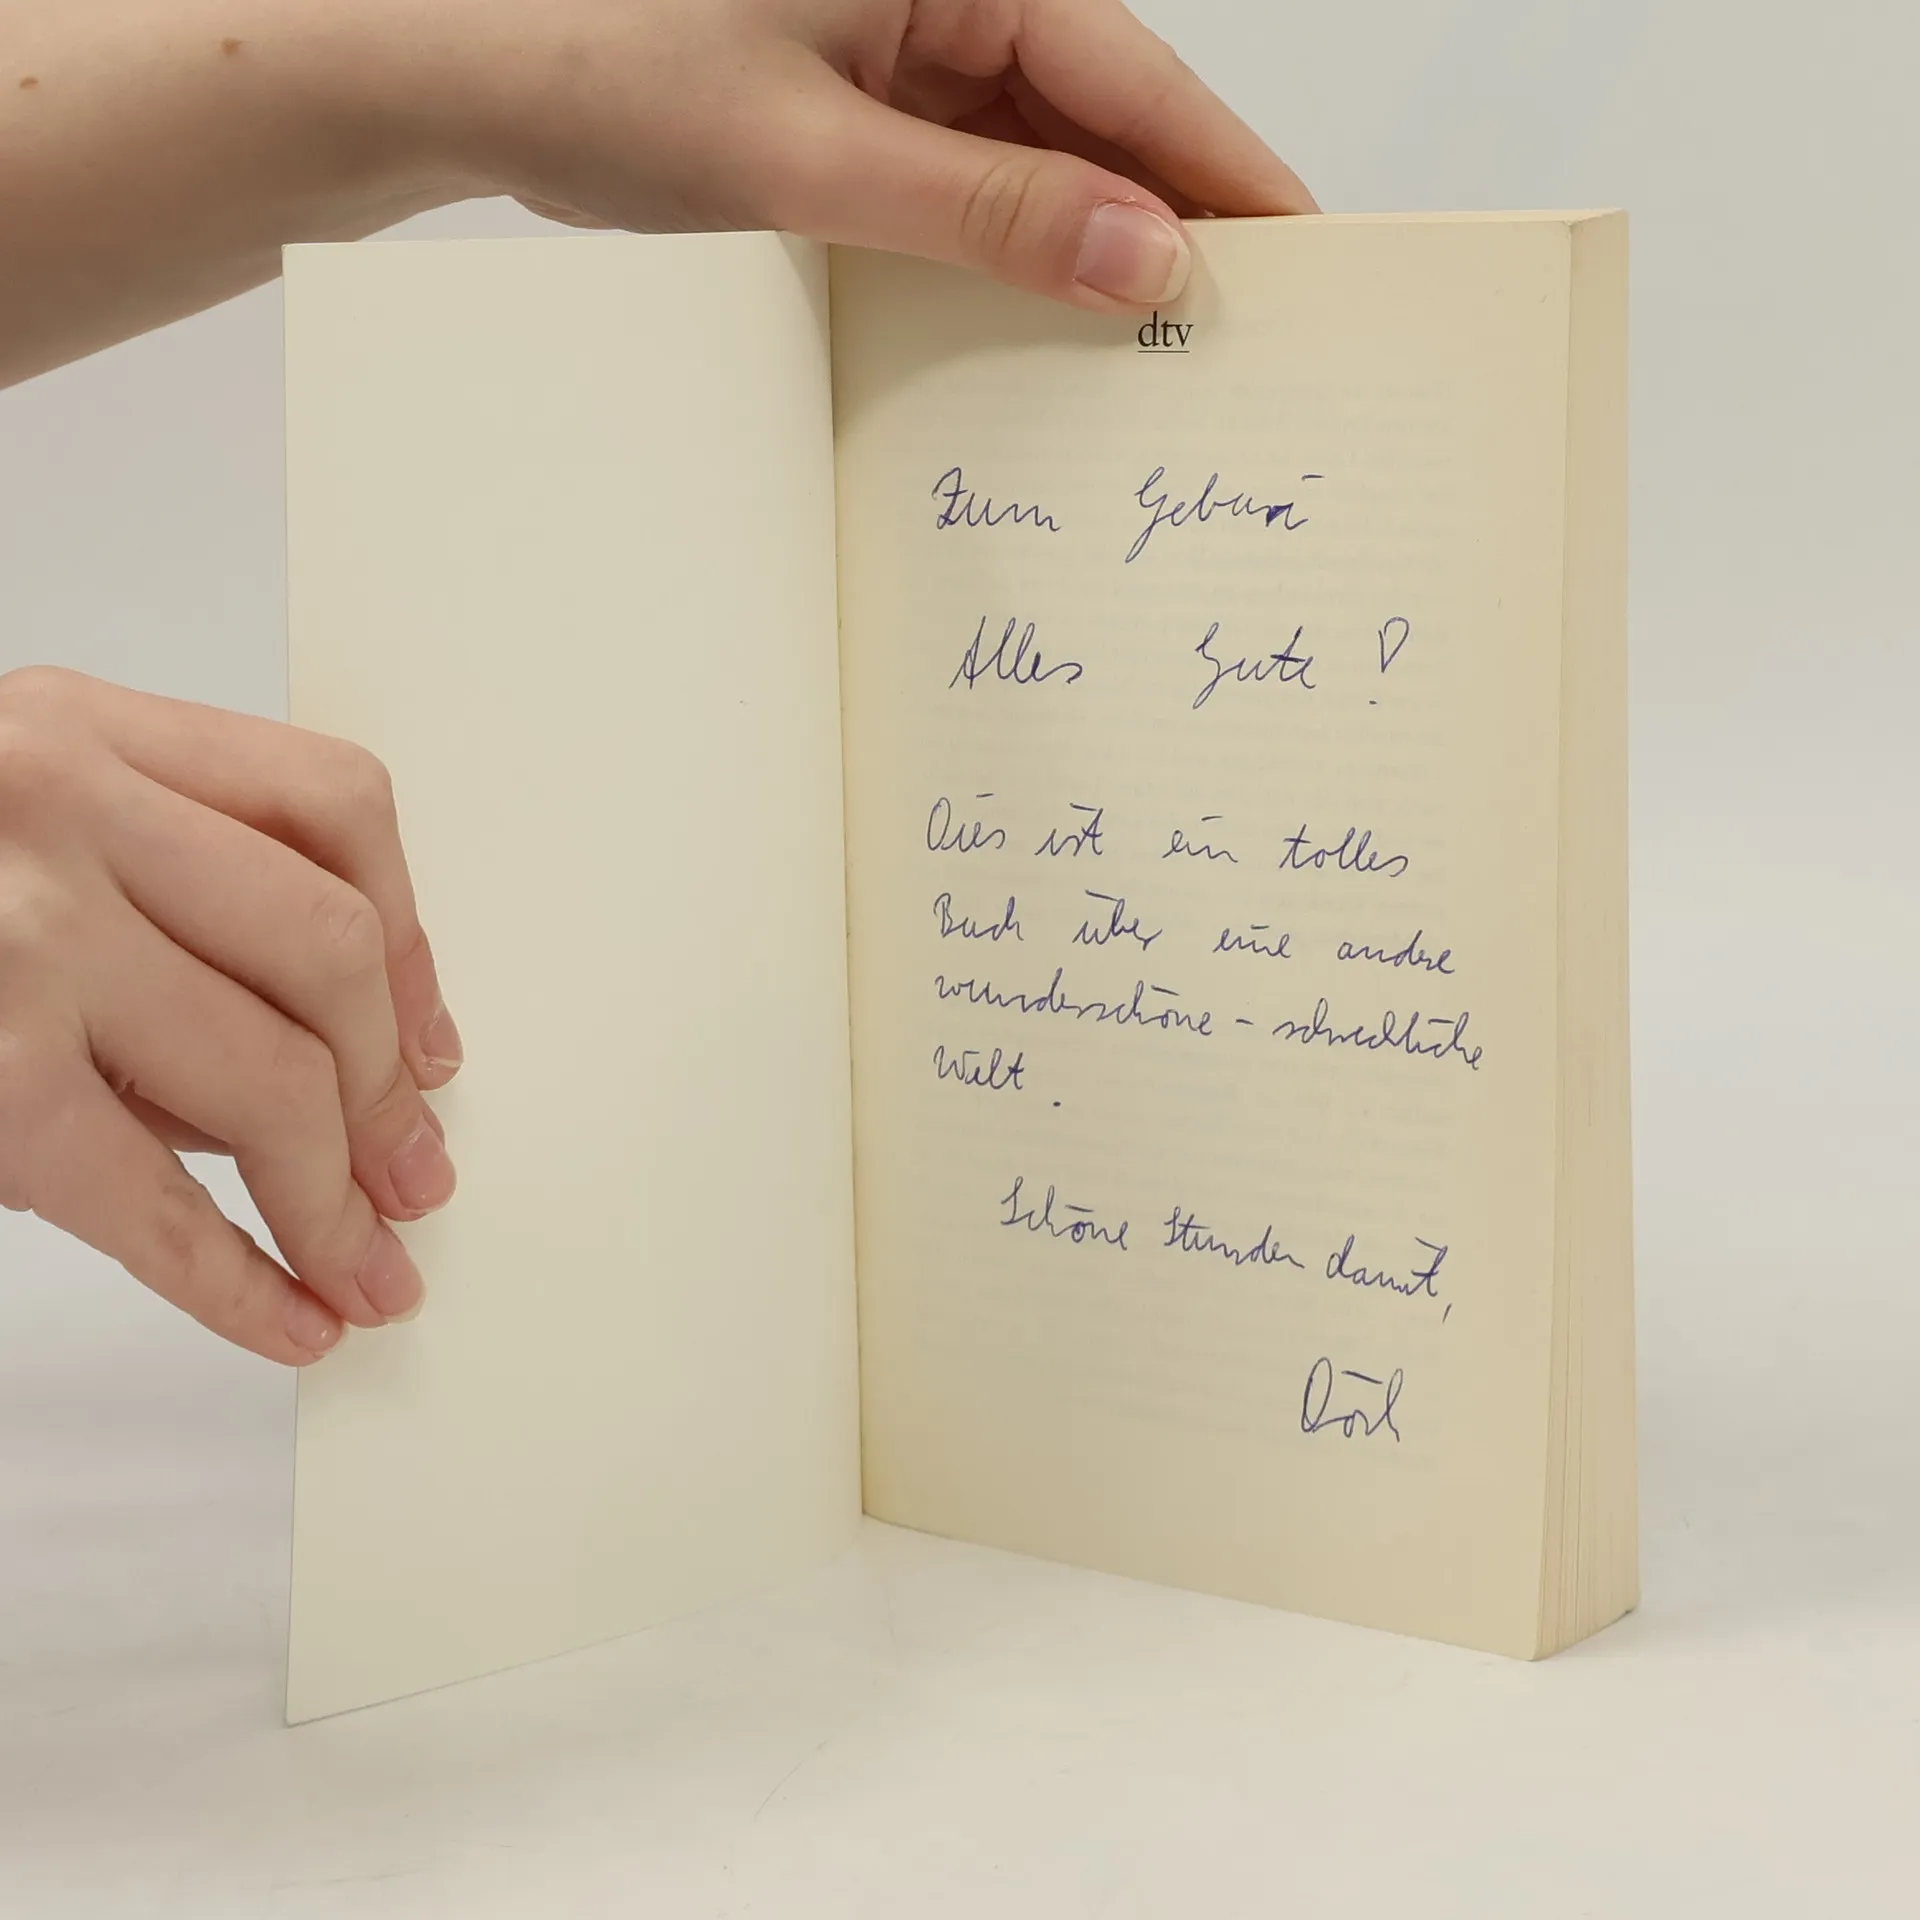 dtv
Zum
Alles Gute!
Dies ist ein tolles
Buch über eine andre
wunderschöne - schreckliche
Welt.
Schöne Stunden damit,